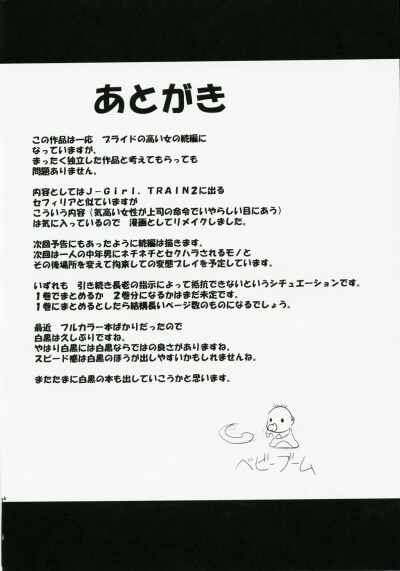 あとがき
この作品は一応　プライドの高い女の続編に
なっていますが、
まったく独立した作品と考えてもらっても
問題ありません。
内容としてはJ-Girl. TRAIN2に出る
セフィリアと似ていますが
こういう内容（気高い女性が上司の命令でいやらしい目にあう）
は気に入っているので　漫画としてリメイクしました。
次回予告にもあったように続編は描きます。
次回は一人の中年男にネチネチとセクハラされるモノと
その後場所を変えて拘束しての変態プレイを予定しています。
いずれも　引き続き長老の指示によって抵抗できないというシチュエーションです。
１巻でまとめるか　２巻分になるかはまだ未定です。
１巻にまとめるとしたら結構長いページ数のものになるでしょう。
最近　フルカラー本ばかりだったので
白黒は久しぶりですね。
やはり白黒には白黒ならではの良さがありますね。
スピード感は白黒のほうが出しやすいかもしれませんね。
またたまに白黒の本も出していこうかと思います。
ベビーブーム